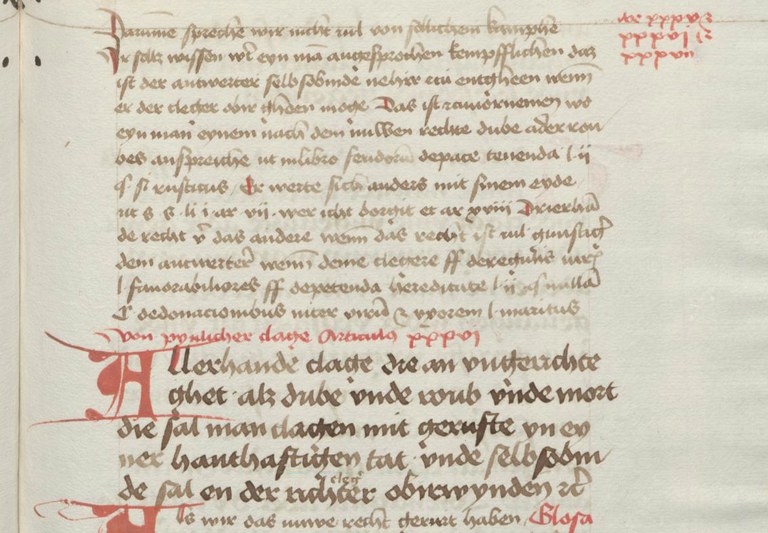 Darume spreche wir nicht vil von sollichem kamphe
Ir solt wissen wo eyn man angesprochen kempfflichen daz
ist der antwerter selbsobinde neher czu entgheen wenn
er der cleger obir gheen moge Das ist zcuuornemen wo
eyn man eynem nach dem nuwen rechte dube ader rou
bes anspreiche ut in libro feudorum de pace tenenda l ij
§ si rusticus Er werte sich anders mit sinem eyde
ut s s li i ar vij wer icht borgit et ar xviii Drierhā
de recht v̄ das andere wenn das recht ist vil gunstig
dem antwerter wenn deme clegere ff de regulis iuris
l fauorabiliores ff de petenda hereditate l ij § nullā
C de donacionibus inter virū z vxorem l maritus
von pynlicher clage Articulus xxxvi
Allerhande clage die an vngerichte
ghet alz dube vnde roub vnde mort
die sal man clagen mit gerufte vn ey
ner hanthaftigen tat vnde selbsobin
cleg
de sal en der richter obirwynden zc
Als wir das nuwe recht gerurt haben Glosa
xxxv z
xxxvi z
xxxvii